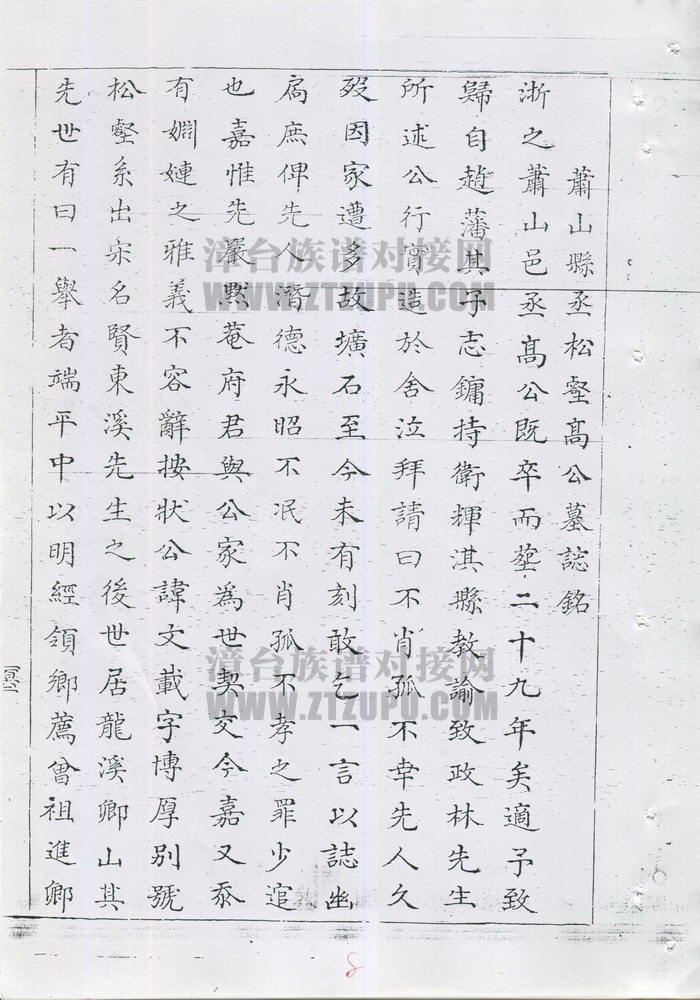 蕭山縣丞松壑髙公墓誌銘
浙之蕭山邑丞髙公既卒而塟二十九年矣適予致
歸自趙藩其子志鏞持衛輝淇縣教諭致政林先生
所述公行實造於舍泣拜請曰不肖孤不幸先人久
歿因家遭多故壙石至今未有刻敢乞一言以誌幽
扄庶俾先人潛德永昭不泯不肖孤不孝之罪少逭
也嘉惟先嚴默菴府君與公家為世契交今嘉又忝
有婣婕之雅義不容辭按狀公諱文載字博厚别號
松壑系出宋名賢東溪先生之後世居龍溪卿山其
先世有曰一舉者端平中以明經領鄉薦曾祖進卿
漳台族谱对接网
WWW.ZTZUPU.COM
漳台族谱对接网
WWW.ZTZUPU.COM
8